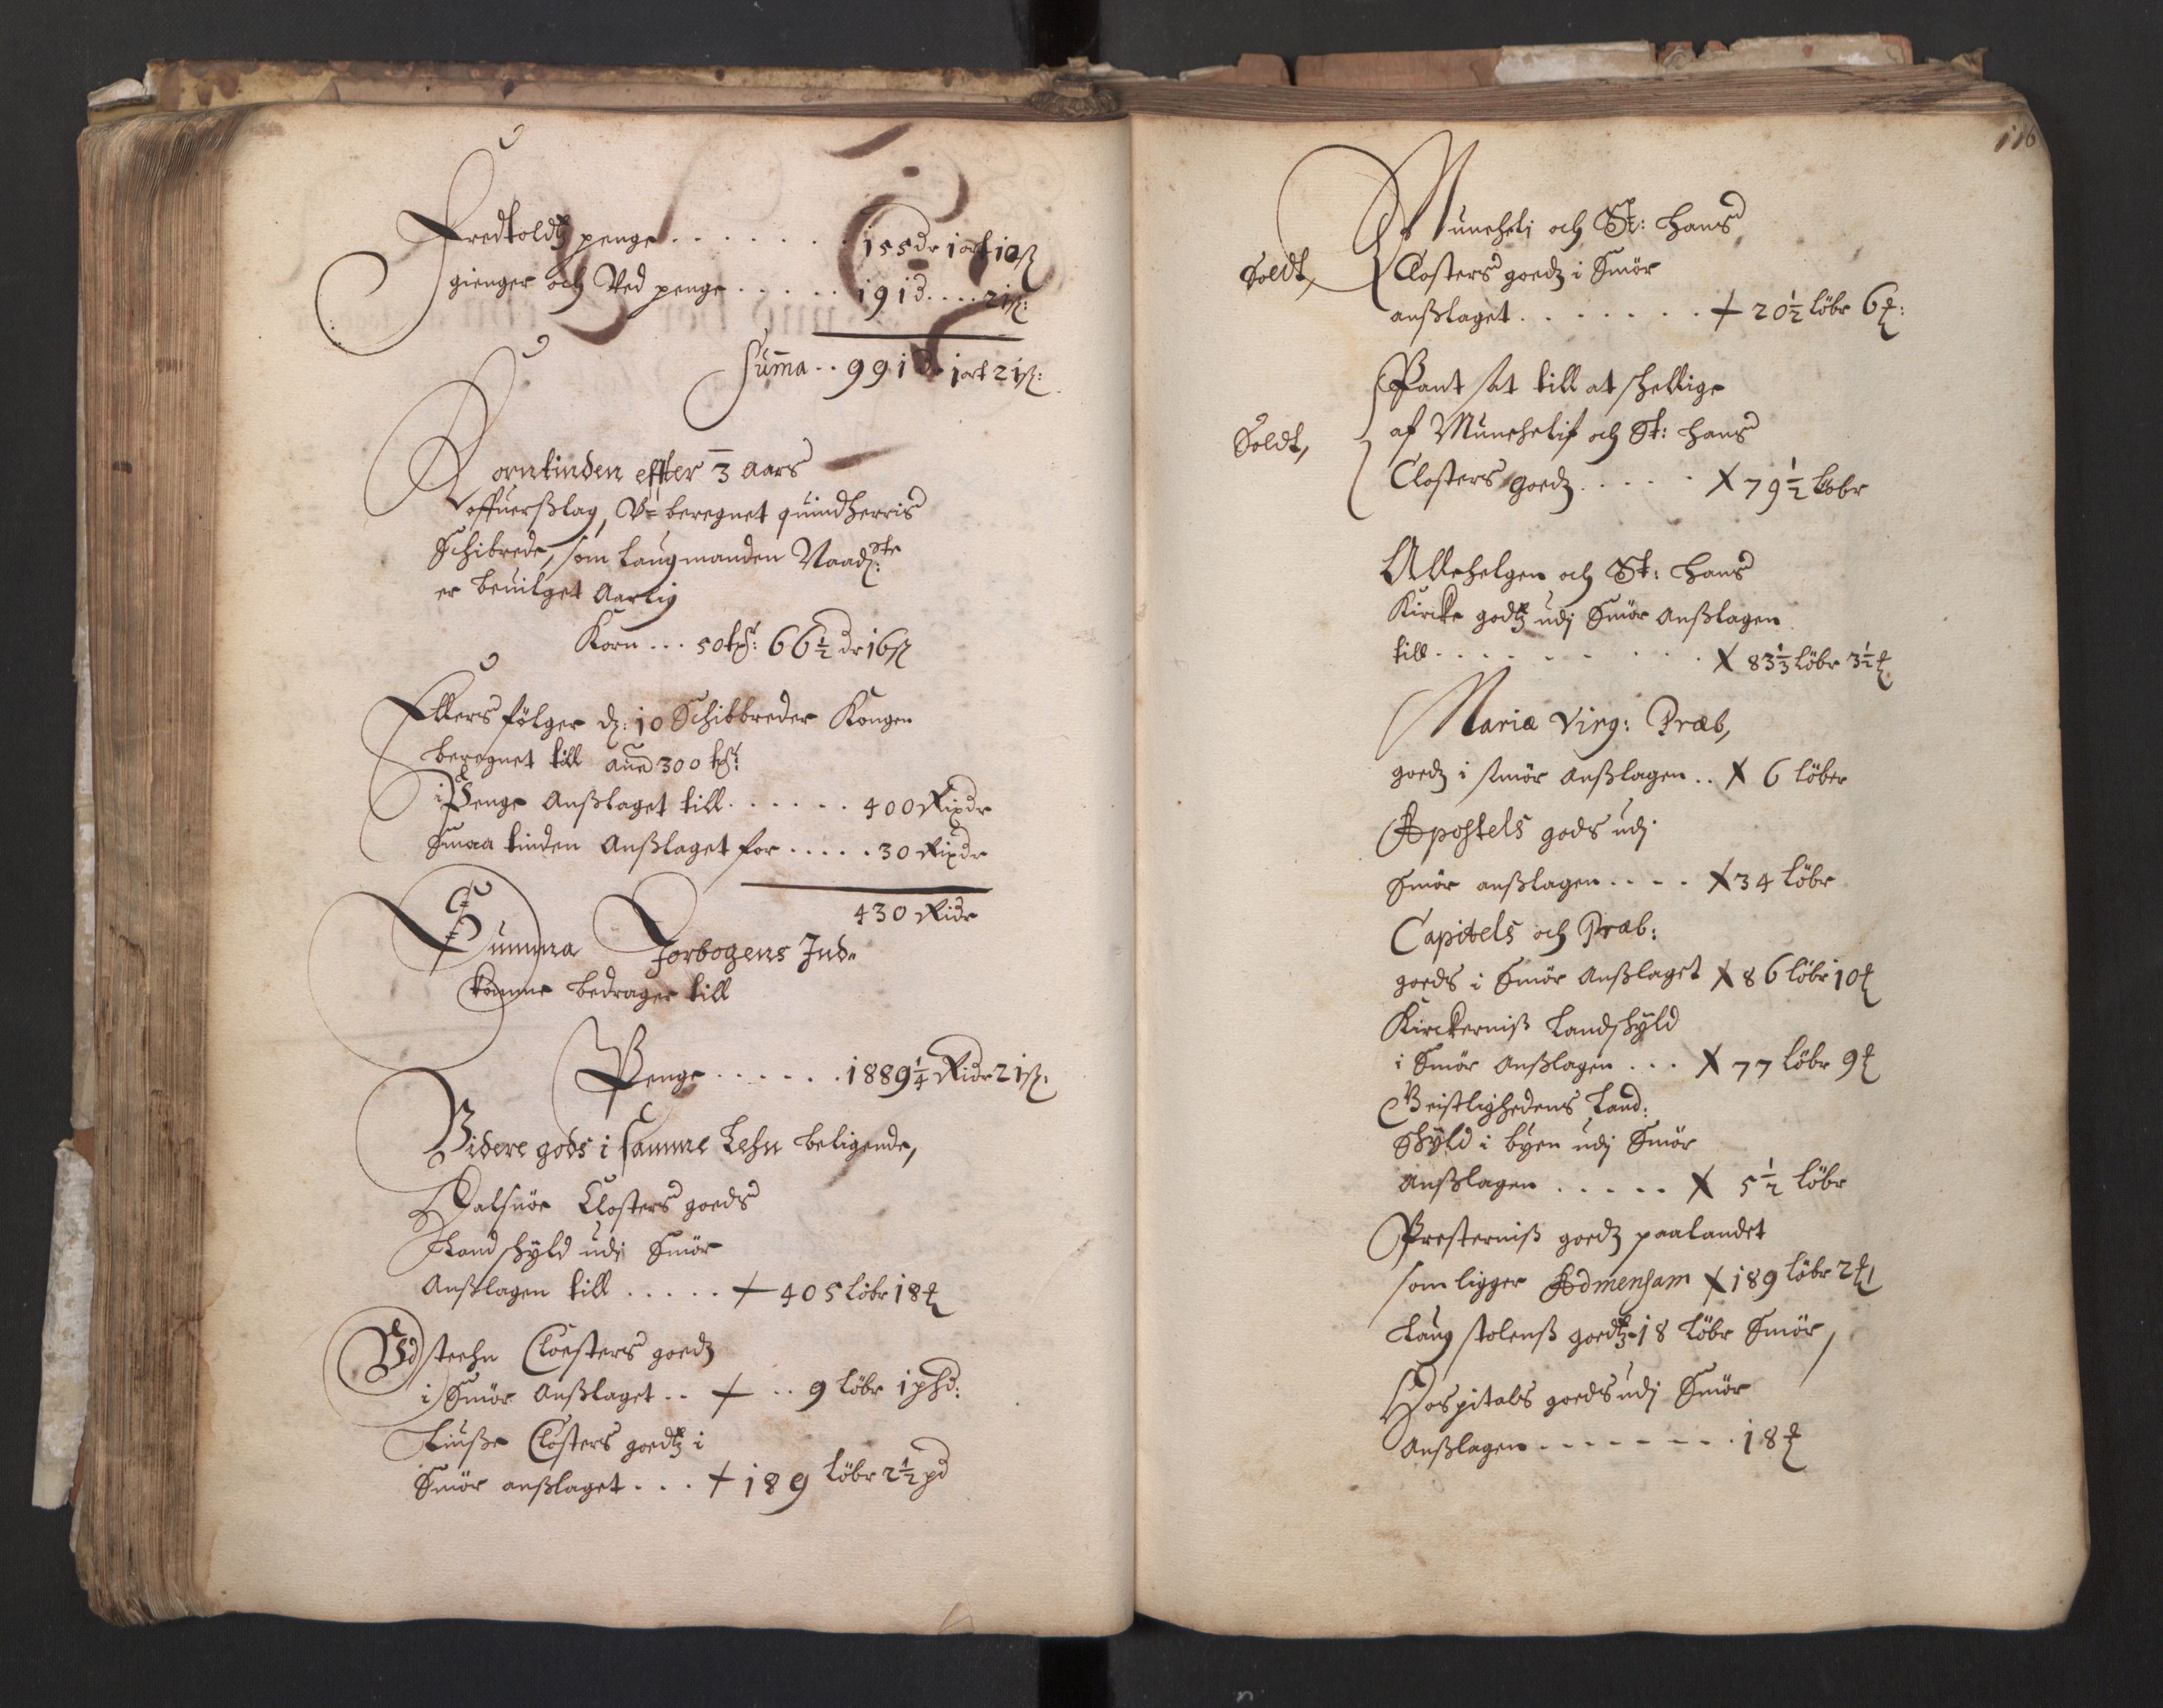 Fredtoldtz penge . . . . . . . 155 dr 1 ort 10 ß
gienger och Ved penge . . . . . 191 d . . . . 21 ß:
Sum̄a . . 991 dr 1 ort 21 ß:
Korntinden effter 3 Aars
offuerßlag, V= beregnet quindherris
Schibrede, som Laugmanden Naadste:
er beuilget Aarlig
Korn . . . 50 tr: 66 ½ dr 16 ß
Ellers følger dz: 10 Schibbreder Kongen
beregnet till 300
i Penge Anßlaget till . . . . . . 400 Rixdr
Smaa tinden Anßlaget for . . . . . 30 Rixdr
430 Ridr
Summa Jorbogens Ind=
komme bedrager till
Penge . . . . . . 1889 ¼ Ridr 21 ß:
Videre gods i samme Lehn beligende,
Halsnöe Closters goeds
Landschyld udi Smör
Anßlagen till . . . . . + 405 löbr 18
Vdsteehn Cloesters goedz
i Smör Anßlaget . . + . . 9 löbr 1 phd:
Liußr Closters goedtz i
Smör anßlaget . . . + 189 löbr 2 ½ pd
116
Munchelj och St: Hans
Soldt, Closters goedz i Smör
anßlaget . . . . . . . + 20 ½ löbr 6
Pant sat till at schellige
Soldt, af Munchelif och St: Hans
Closters goedz . . . . . X 79 ½ löbr
Allehelgen och St: Hans
Kircke godtz udj Smör Anßlagen
till . . . . . . . . . X 83 ⅓ löbr 3 ½
Mariæ Virg: Præb,
goedz i smör Anßlagen . . X 6 löber
Apostels gods udj
Smör anßlagen . . . . X 34 löbr
Capitels och Præb:
goeds i Smör Anßlaget X 86 löbr 10
Kirckerniß Landschyld
i Smör Anßlagen . . . X 77 löbr 9
Geistlighedens Land:
Schyld i byen udj Smör
Anßlagen . . . . . X 5 ½ löbr
Presterniß goedz paalandet
som ligger Admensam X 189 löbr 2
Laugstolenß goedtz 18 löbr Smör,
Hospitals goeds udj Smör
Anßlagen . . . . . . . . 18